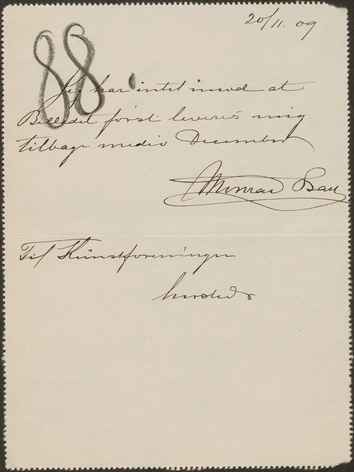 20/11. 09
88
Jeg har intet imod at
Billedet først leveres mig
tilbage medio December
Monrad
Til Kunstforeningen